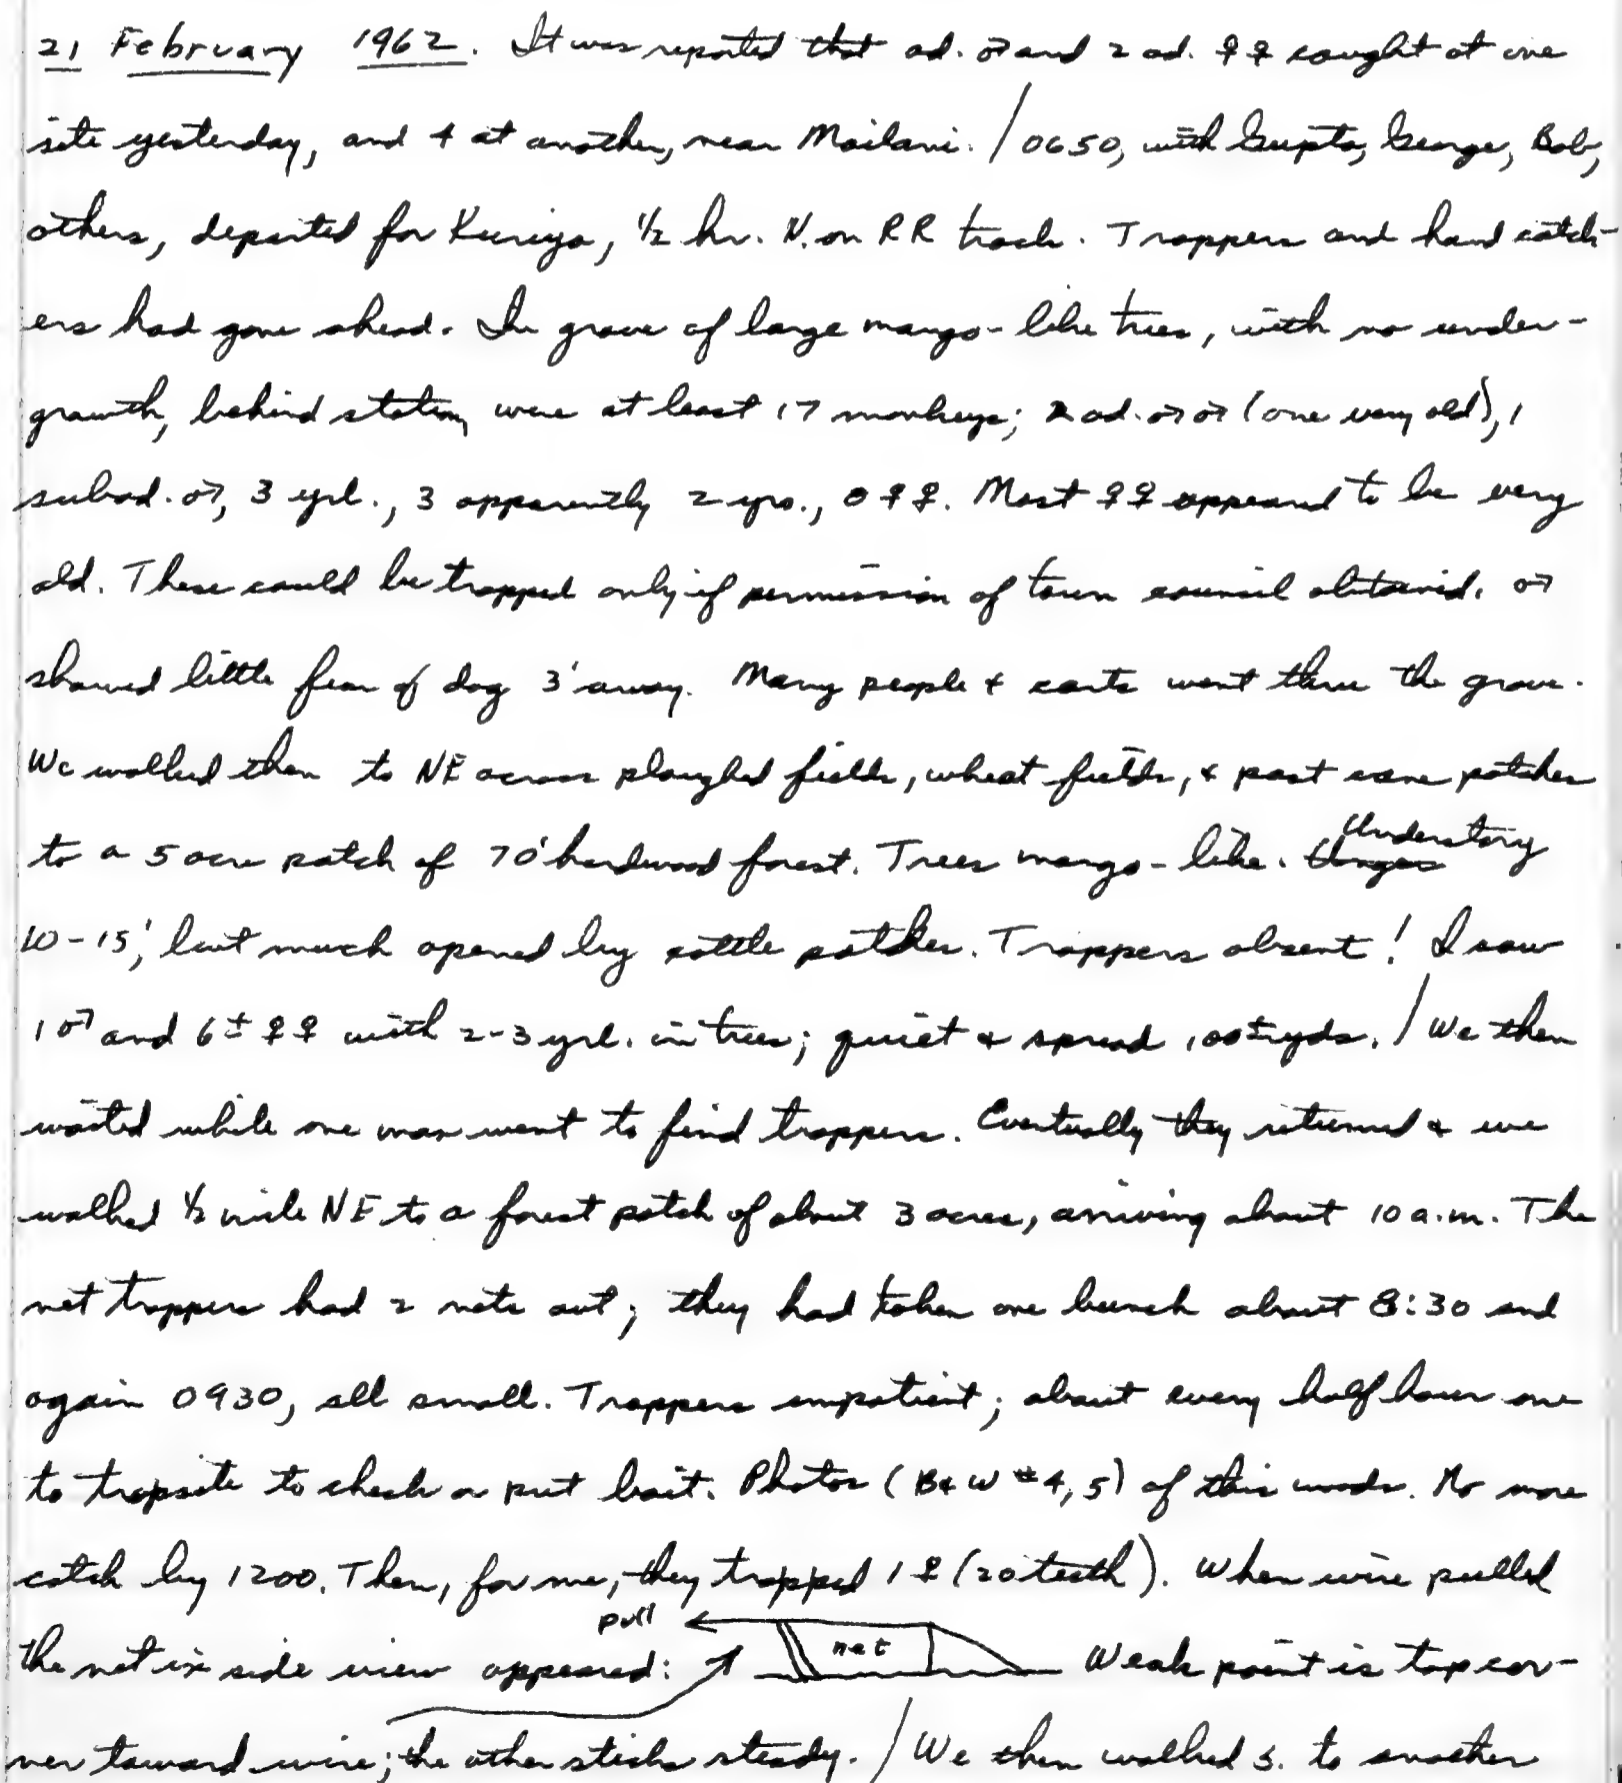 21 February 1962. It was reported that ad. ♂ and 2 ad. ♀♀ caught at one
site yesterday, and 4 at another, near Mailani. / 0650, with Gupta, George, Bob,
others, departed for Kuriya, ½ hr. N. on RR track. Trappers and hand catch-
ers had gone ahead. In grove of large mango-like trees, with no under-
growth, behind station, were at least 17 monkeys; 2 ad. ♂♂ (one very old), 1
subad. ♂, 3 yrl., 3 apparently 2 yrs., 8 ♀♀. Most ♀♀ appeared to be very
old. These could be trapped only if permission of town council obtained. ♂
showed little fear of dog 3' away. Many people & carts went thru the grove.
We walked then to NE across ploughed fields, wheat fields, & past cane patches
to a 5 acre patch of 70' hardwood forest. Trees mango-like. Understory
10-15', but much opened by cattle paths. Trappers absent! I saw
1 ♂ and 6± ♀♀ with 2-3 yrl. in trees; quiet & spread 100± yds. / We then
waited while one man went to find trappers. Eventually they returned & we
walked ½ mile NE to a forest patch of about 3 acres, arriving about 10 a.m. The
net trappers had 2 nets out; they had taken one bunch about 8:30 and
again 0930, all small. Trappers impatient; about every half hour one
to trapsite to check or put bait. Photos (B&W #4,5) of this woods. No more
catch by 1200. Then, for me, they trapped 1 ♀ (20 teeth). When wire pulled
pull
the net in side view appeared: net Weak point is top cor-
ner toward wire; the other sticks steady. / We then walked S. to another